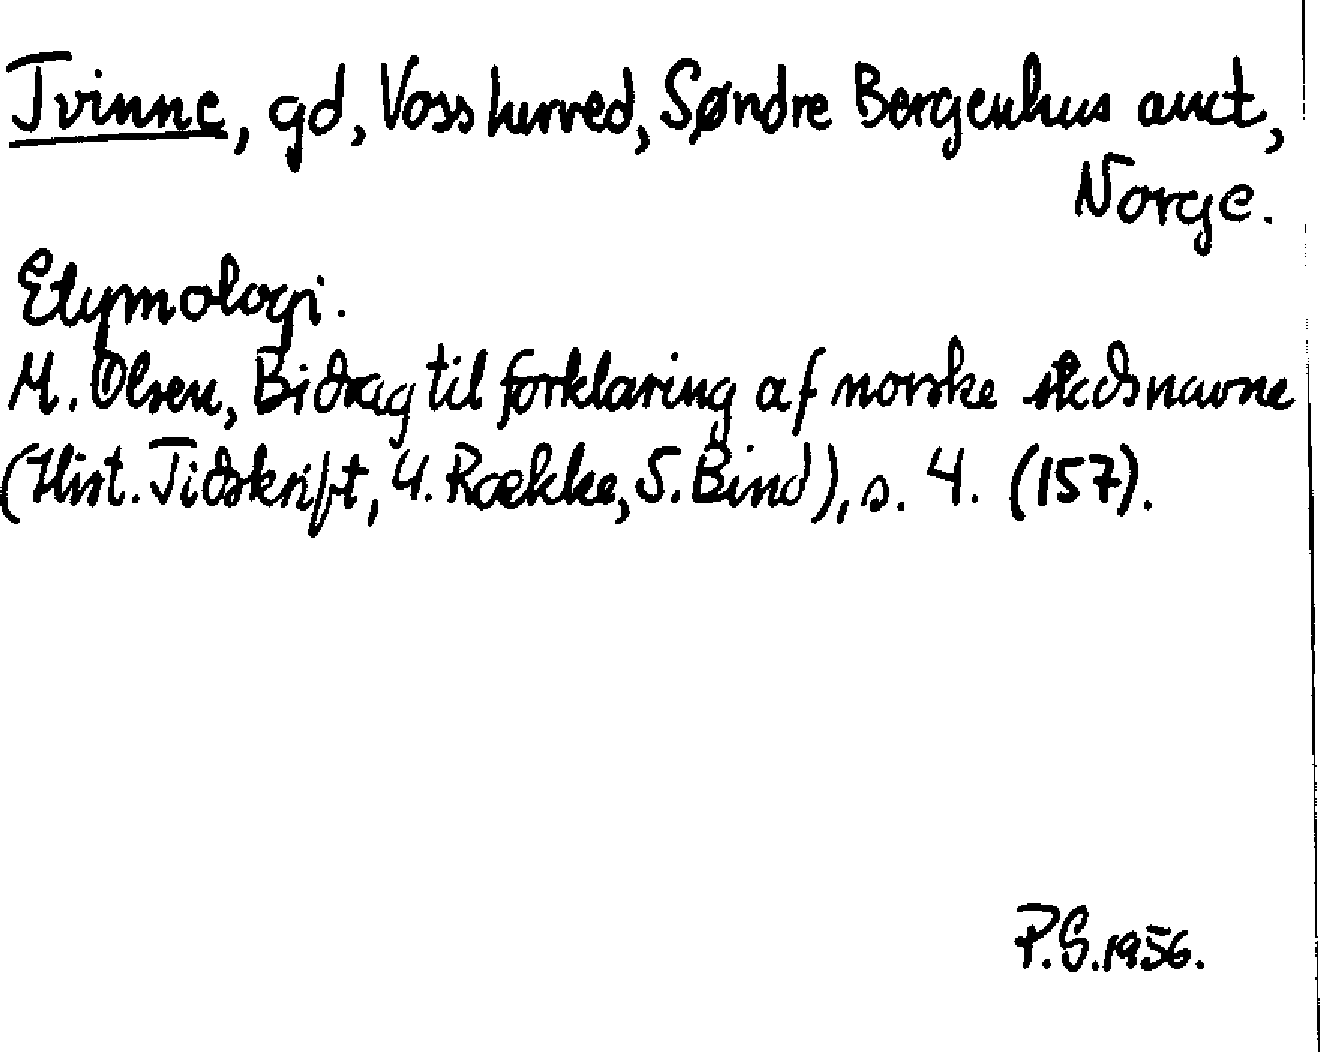 Tvinne, gd, Voss herred, Søndre Bergenhus amt,
Norge.
Etymologi.
M. Olsen, Bidrag til forklaring af norske stedsnavne
(Hist. Tidsskrift, 4. Række, 5. Bind), s. 4. (157).
P.S. 1956.